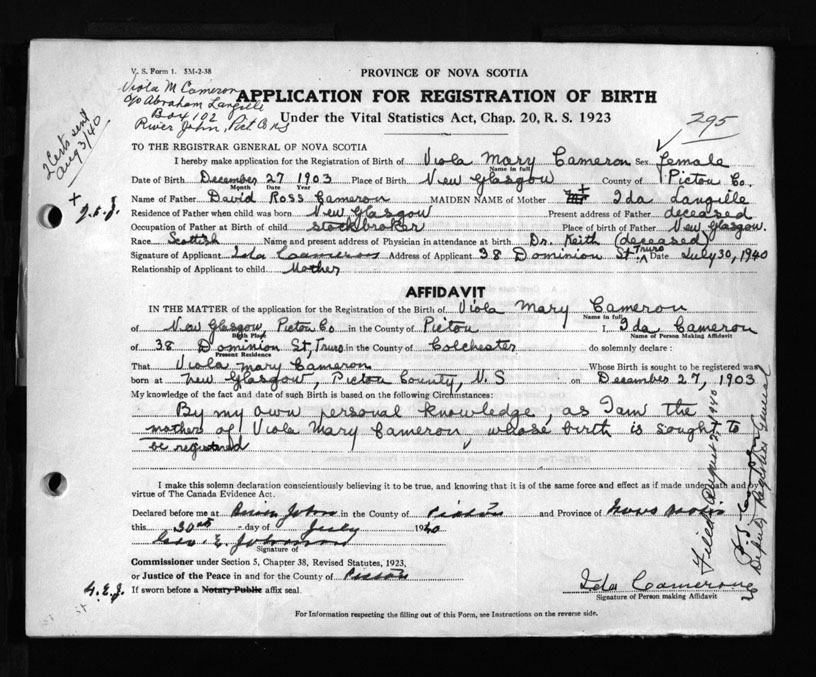 V. S. Form 1. 5M-2-38
PROVINCE OF NOVA SCOTIA
Viola M Cameron
c/o Abraham Langille
Box 102
River John, Pict Co NS
2 Certs sent
Aug 3/40
APPLICATION FOR REGISTRATION OF BIRTH
Under the Vital Statistics Act, Chap. 20, R. S. 1923
295
TO THE REGISTRAR GENERAL OF NOVA SCOTIA
I hereby make application for the Registration of Birth of Viola Mary Cameron Sex female
Name in full
Date of Birth December 27 1903 Place of Birth New Glasgow County of Pictou Co.
Month Date Year
Name of Father David Ross Cameron MAIDEN NAME of Mother Ida Langille
Residence of Father when child was born New Glasgow Present address of Father deceased
Occupation of Father at Birth of child stockbroker Place of birth of Father New Glasgow.
Race Scottish Name and present address of Physician in attendance at birth Dr. Keith (deceased)
Signature of Applicant Ida Cameron Address of Applicant 38 Dominion St. Truro Date July 30, 1940
Relationship of Applicant to child Mother
AFFIDAVIT
IN THE MATTER of the application for the Registration of the Birth of Viola Mary Cameron
Name in full
of New Glasgow, Pictou Co in the County of Pictou I, Ida Cameron
Birth Place Name of Person Making Affidavit
of 38 Dominion St, Truro in the County of Colchester do solemnly declare :
Present Residence
That Viola Mary Cameron Whose Birth is sought to be registered was
born at New Glasgow, Pictou County, N. S on December 27, 1903
My knowledge of the fact and date of such Birth is based on the following Circumstances:
By my own personal knowledge, as I am the
mother of Viola Mary Cameron, whose birth is sought to
be registered
I make this solemn declaration conscientiously believing it to be true, and knowing that it is of the same force and effect as if made under oath and by
virtue of The Canada Evidence Act.
Declared before me at River John in the County of Pictou and Province of Nova Scotia
this 30th day of July 1940
Geo. E. Johnson
Signature of
Commissioner under Section 5, Chapter 38, Revised Statutes, 1923,
or Justice of the Peace in and for the County of Pictou
If sworn before a Notary Public affix seal.
G. E. J.
Ida Cameron
Signature of Person making Affidavit
For Information respecting the filling out of this Form, see Instructions on the reverse side.
Deputy Registrar General